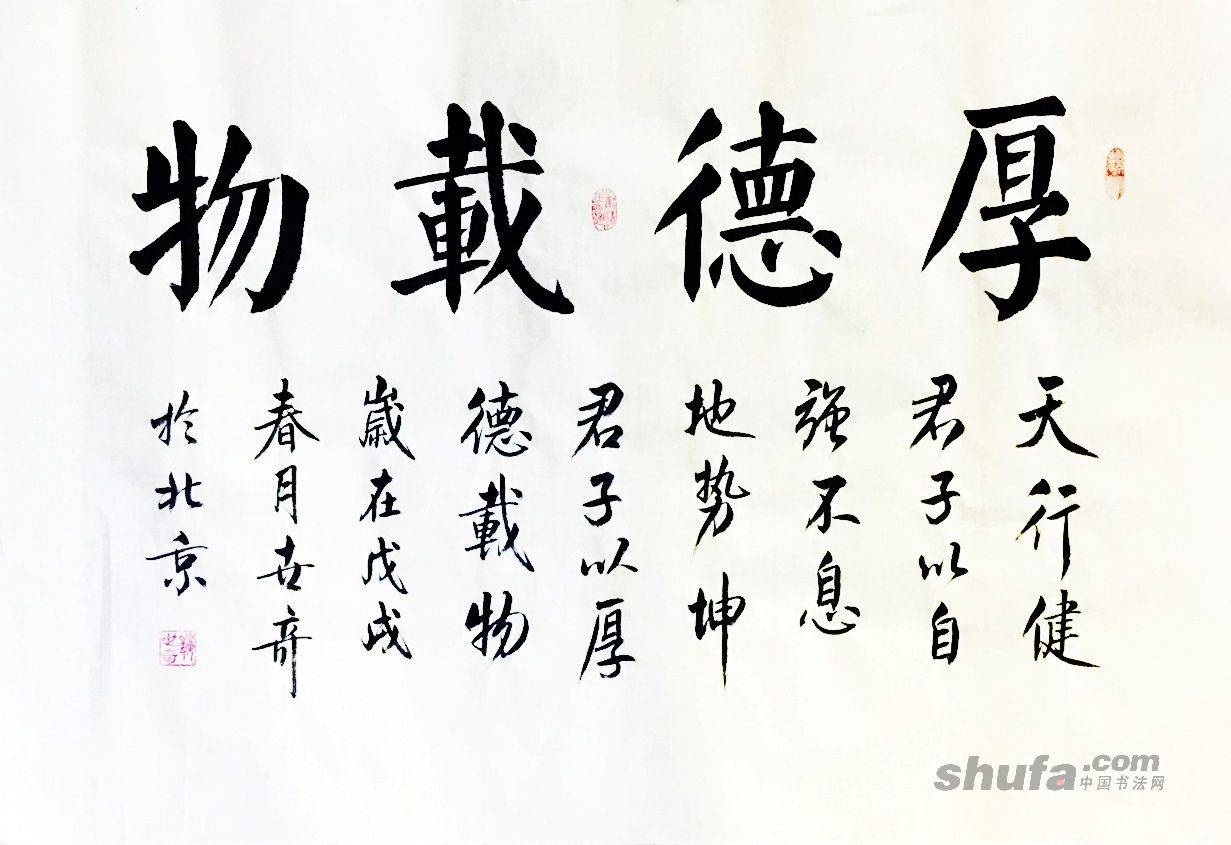 厚德載物
天行健
君子以自
强不息
地势坤
君子以厚
德載物
歲在戊戌
春月世奇
於北京
shufa.com
中国书法网